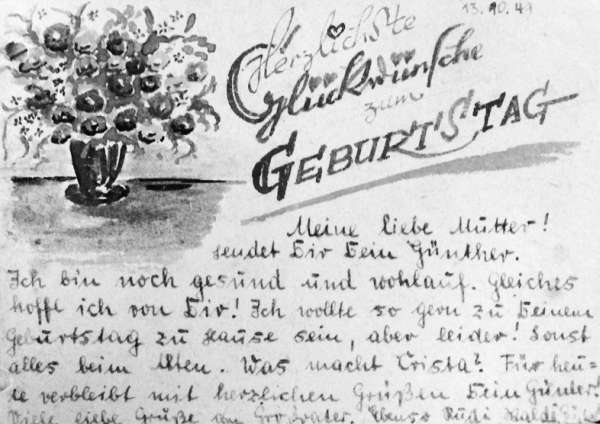 13.10.47
Herzlichste
Glückwünsche
zum
GEBURTSTAG
Meine liebe Mutter!
sendet Dir Dein Günther.
Ich bin noch gesund und wohlauf. Gleiches
hoffe ich von Dir! Ich wollte so gern zu Deinem
Geburtstag zu Hause sein, aber leider! Sonst
alles beim Alten. Was macht Crista? Für heu-
te verbleibt mit herzlichen Grüßen Dein Günter!
Viele liebe Grüße an Großvater. Ebenso Rudi